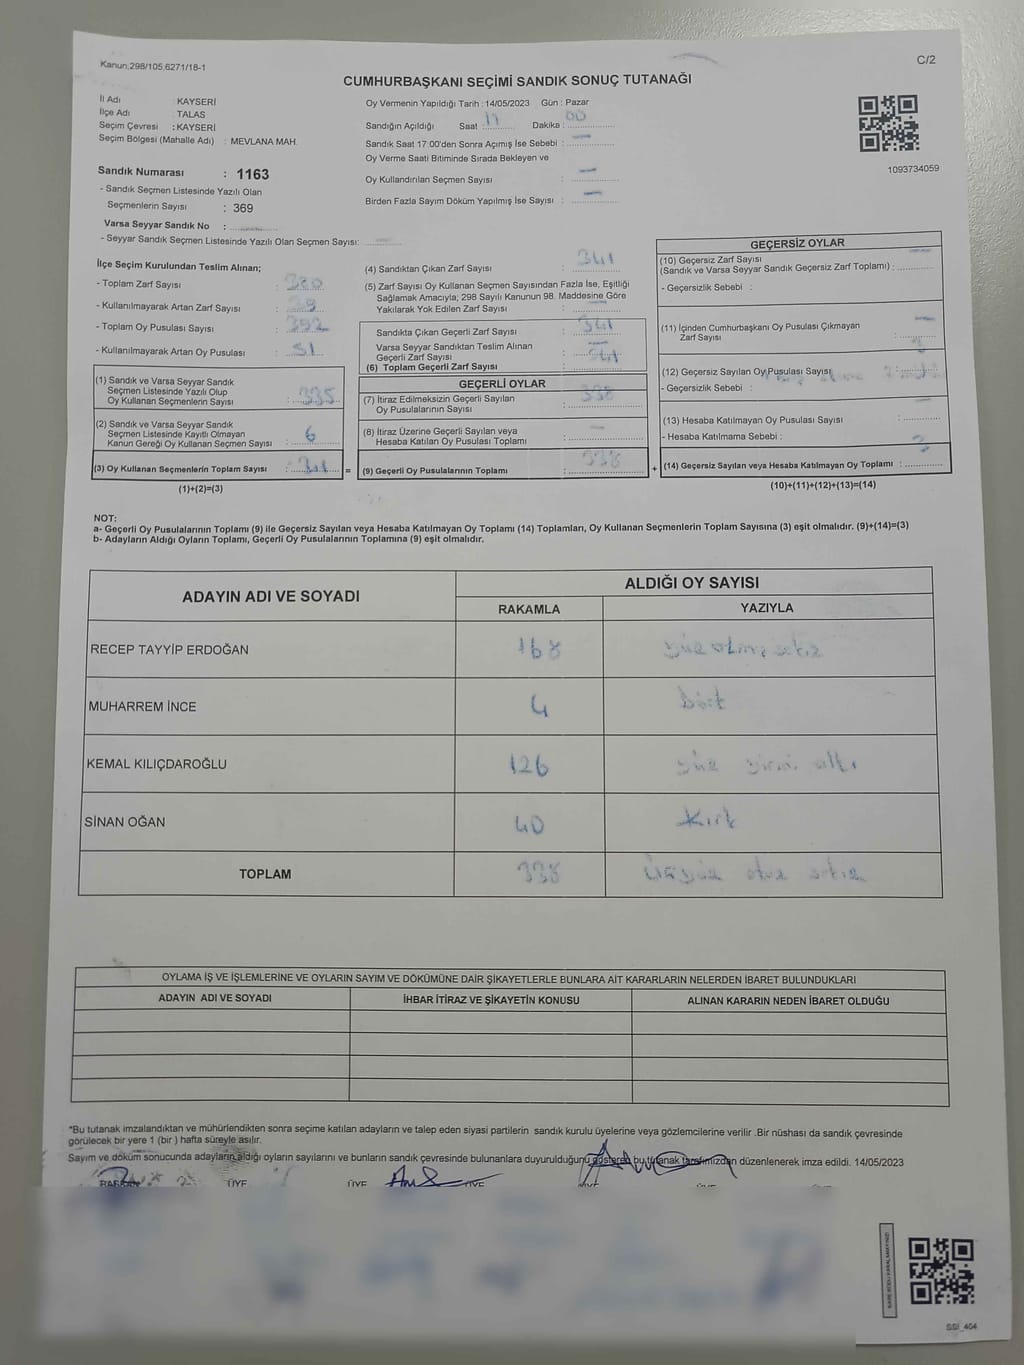 Kanun,298/105.6271/18-1
C/2
CUMHURBAŞKANI SEÇİMİ SANDIK SONUÇ TUTANAĞI
İl Adı : KAYSERİ
İlçe Adı : TALAS
Seçim Çevresi : KAYSERİ
Seçim Bölgesi (Mahalle Adı) : MEVLANA MAH.
Sandık Numarası : 1163
- Sandık Seçmen Listesinde Yazılı Olan
Seçmenlerin Sayısı : 369
Varsa Seyyar Sandık No :
- Seyyar Sandık Seçmen Listesinde Yazılı Olan Seçmen Sayısı:
Oy Vermenin Yapıldığı Tarih : 14/05/2023 Gün : Pazar
Sandığın Açıldığı Saat : 17 Dakika : 00
Sandık Saat 17:00'den Sonra Açımış İse Sebebi : —
Oy Verme Saati Bitiminde Sırada Bekleyen ve
Oy Kullandırılan Seçmen Sayısı : —
Birden Fazla Sayım Döküm Yapılmış İse Sayısı : —
1093734059
İlçe Seçim Kurulundan Teslim Alınan;
- Toplam Zarf Sayısı : 380
- Kullanılmayarak Artan Zarf Sayısı : 39
- Toplam Oy Pusulası Sayısı : 392
- Kullanılmayarak Artan Oy Pusulası : 51
(1) Sandık ve Varsa Seyyar Sandık
Seçmen Listesinde Yazılı Olup
Oy Kullanan Seçmenlerin Sayısı : 335
(2) Sandık ve Varsa Seyyar Sandık
Seçmen Listesinde Kayıtlı Olmayan
Kanun Gereği Oy Kullanan Seçmen Sayısı : 6
(3) Oy Kullanan Seçmenlerin Toplam Sayısı : 341 =
(1)+(2)=(3)
(4) Sandıktan Çıkan Zarf Sayısı : 341
(5) Zarf Sayısı Oy Kullanan Seçmen Sayısından Fazla İse, Eşitliği
Sağlamak Amacıyla; 298 Sayılı Kanunun 98. Maddesine Göre
Yakılarak Yok Edilen Zarf Sayısı : —
Sandıkta Çıkan Geçerli Zarf Sayısı : 341
Varsa Seyyar Sandıktan Teslim Alınan
Geçerli Zarf Sayısı : —
(6) Toplam Geçerli Zarf Sayısı : 341
GEÇERLİ OYLAR
(7) İtiraz Edilmeksizin Geçerli Sayılan
Oy Pusulalarının Sayısı : 338
(8) İtiraz Üzerine Geçerli Sayılan veya
Hesaba Katılan Oy Pusulası Toplamı : —
(9) Geçerli Oy Pusulalarının Toplamı : 338 +
GEÇERSİZ OYLAR
(10) Geçersiz Zarf Sayısı
(Sandık ve Varsa Seyyar Sandık Geçersiz Zarf Toplamı) : —
- Geçersizlik Sebebi :
(11) İçinden Cumhurbaşkanı Oy Pusulası Çıkmayan
Zarf Sayısı : —
(12) Geçersiz Sayılan Oy Pusulası Sayısı : 3
- Geçersizlik Sebebi :
(13) Hesaba Katılmayan Oy Pusulası Sayısı : —
- Hesaba Katılmama Sebebi :
(14) Geçersiz Sayılan veya Hesaba Katılmayan Oy Toplamı : 3
(10)+(11)+(12)+(13)=(14)
NOT:
a- Geçerli Oy Pusulalarının Toplamı (9) ile Geçersiz Sayılan veya Hesaba Katılmayan Oy Toplamı (14) Toplamları, Oy Kullanan Seçmenlerin Toplam Sayısına (3) eşit olmalıdır. (9)+(14)=(3)
b- Adayların Aldığı Oyların Toplamı, Geçerli Oy Pusulalarının Toplamına (9) eşit olmalıdır.
ADAYIN ADI VE SOYADI ALDIĞI OY SAYISI
RAKAMLA YAZIYLA
RECEP TAYYİP ERDOĞAN 168 yüz atmış sekiz
MUHARREM İNCE 4 Dört
KEMAL KILIÇDAROĞLU 126 yüz yirmi altı
SİNAN OĞAN 40 Kırk
TOPLAM 338 Üçyüz otuz sekiz
OYLAMA İŞ VE İŞLEMLERİNE VE OYLARIN SAYIM VE DÖKÜMÜNE DAİR ŞİKAYETLERLE BUNLARA AİT KARARLARIN NELERDEN İBARET BULUNDUKLARI
ADAYIN ADI VE SOYADI İHBAR İTİRAZ VE ŞİKAYETİN KONUSU ALINAN KARARIN NEDEN İBARET OLDUĞU
*Bu tutanak imzalandıktan ve mühürlendikten sonra seçime katılan adayların ve talep eden siyasi partilerin sandık kurulu üyelerine veya gözlemcilerine verilir .Bir nüshası da sandık çevresinde
görülecek bir yere 1 (bir ) hafta süreyle asılır.
Sayım ve döküm sonucunda adayların aldığı oyların sayılarını ve bunların sandık çevresinde bulunanlara duyurulduğunu gösteren bu tutanak tarafımızdan düzenlenerek imza edildi. 14/05/2023
BAŞKAN ÜYE ÜYE ÜYE ÜYE
SSI_404